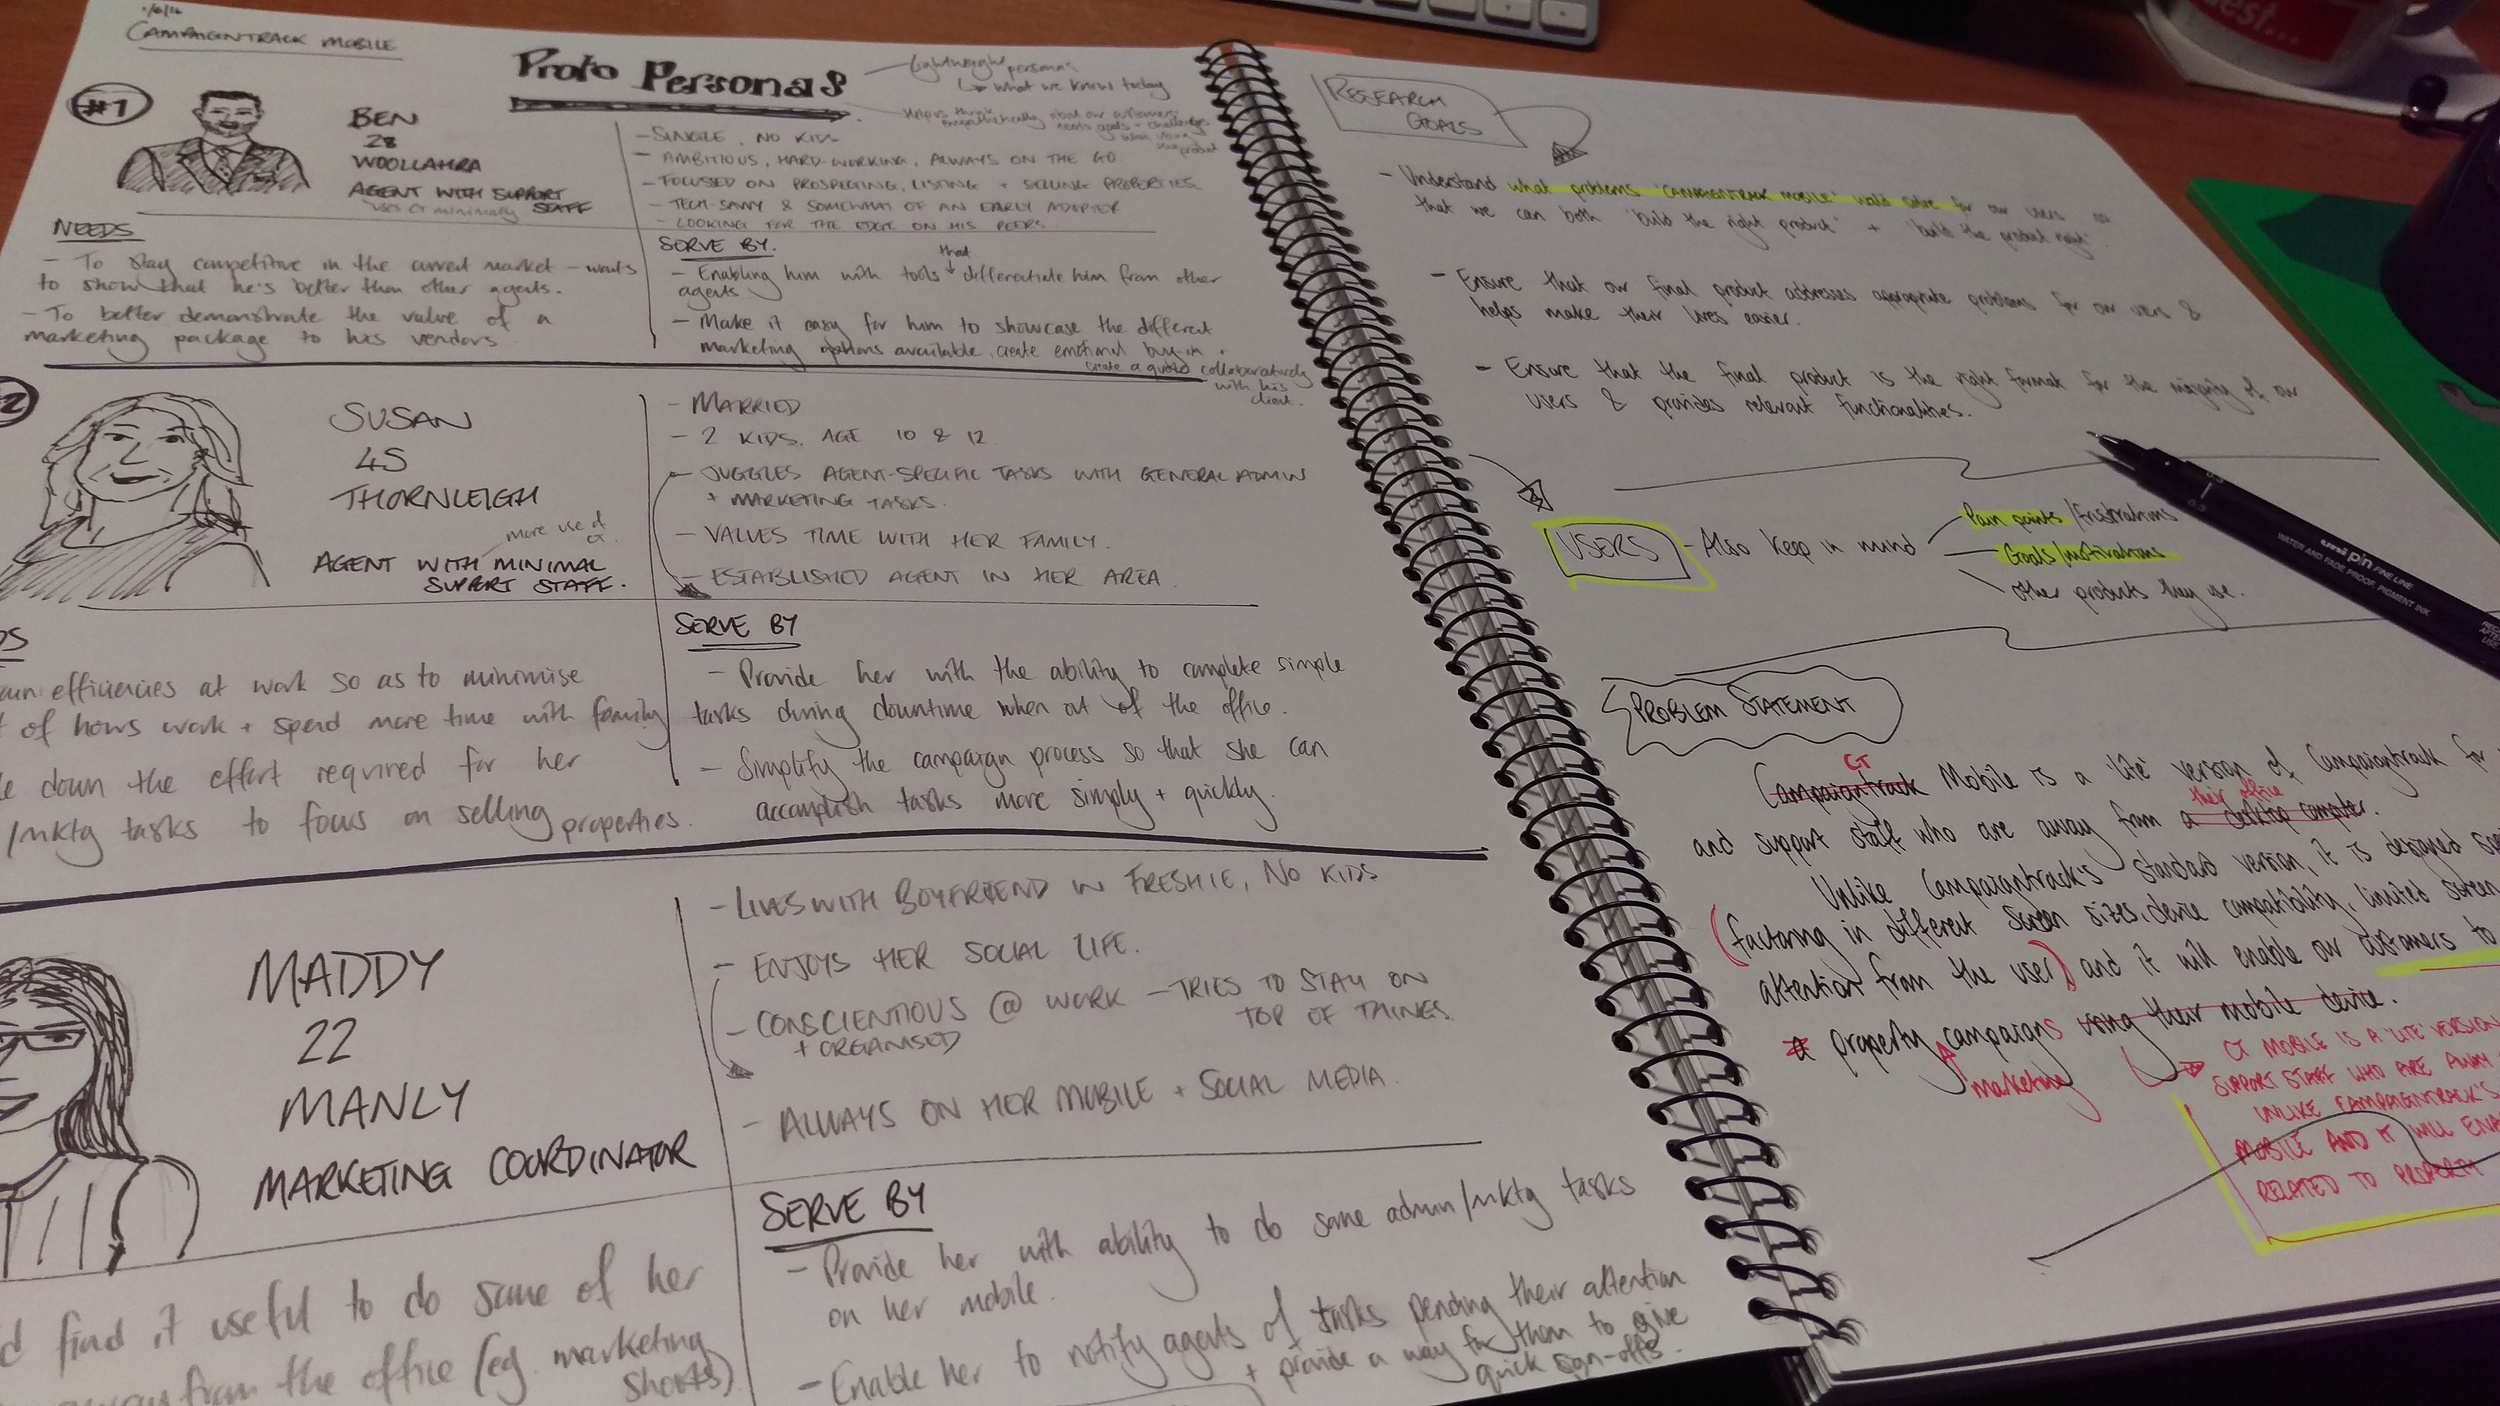 CAMPAIGNTRACK MOBILE
Proto Personas
Lightweight personas
what we know today
Helps think
empathetically about our customers
needs goals + challenges
when using
the product
#1
BEN
28
WOOLLAHRA
AGENT WITH SUPPORT
STAFF
uses CT minimally
- SINGLE, NO KIDS
- AMBITIOUS, HARD-WORKING, ALWAYS ON THE GO
- FOCUSED ON PROSPECTING, LISTING + SELLING PROPERTIES
- TECH-SAVVY & SOMEWHAT OF AN EARLY ADOPTER
- LOOKING FOR THE EDGE ON HIS PEERS.
NEEDS
- To stay competitive in the current market - wants
to show that he's better than other agents.
- To better demonstrate the value of a
marketing package to his vendors
SERVE BY.
- Enabling him with tools that differentiate him from other
agents
- Make it easy for him to showcase the different
marketing options available, create emotional buy-in +
create a quote collaboratively
with his
client.
2
SUSAN
45
THORNLEIGH
more use of
CT.
AGENT WITH MINIMAL
SUPPORT STAFF.
- MARRIED
- 2 KIDS, AGE 10 & 12
- JUGGLES AGENT-SPECIFIC TASKS WITH GENERAL ADMIN
+ MARKETING TASKS.
- VALUES TIME WITH HER FAMILY.
- ESTABLISHED AGENT IN HER AREA.
DS
efficiencies at work so as to minimise
of hours work + spend more time with family
down the effort required for her
/mktg tasks to focus on selling properties.
SERVE BY
- Provide her with the ability to complete simple
tasks during downtime when out of the office.
- Simplify the campaign process so that she can
accomplish tasks more simply + quickly.
MADDY
22
MANLY
MARKETING COORDINATOR
- LIVES WITH BOYFRIEND IN FRESHIE, NO KIDS
- ENJOYS HER SOCIAL LIFE.
- CONSCIENTIOUS @ WORK - TRIES TO STAY ON
+ ORGANISED TOP OF THINGS.
- ALWAYS ON HER MOBILE + SOCIAL MEDIA.
d find it useful to do some of her
away from the office (eg. marketing
shorts)
SERVE BY
- Provide her with ability to do some admin/mktg tasks
on her mobile.
- Enable her to notify agents of tasks pending their attention
+ provide a way for them to give
quick sign-offs.
RESEARCH
GOALS
- Understand what problems 'CAMPAIGNTRACK MOBILE' would solve for our users so
that we can both 'build the right product' + 'build the product right'.
- Ensure that our final product addresses appropriate problems for our users &
helps make their lives easier.
- Ensure that the final product is the right format for the majority of our
users & provides relevant functionalities.
USERS - Also keep in mind
Pain points/frustrations
Goals/motivations
other products they use.
PROBLEM STATEMENT
CT
Campaigntrack Mobile is a 'lite' version of Campaigntrack for
their office
and support staff who are away from a desktop computer.
Unlike Campaigntrack's standard version, it is designed
(factoring in different screen sizes, device compatibility, limited screen
attention from the user) and it will enable our customers to
a property campaigns using their mobile device.
marketing
CT MOBILE IS A LITE VERSION
SUPPORT STAFF WHO ARE AWAY
UNLIKE CAMPAIGNTRACK'S
MOBILE AND IT WILL ENA
RELATED TO PROPERTY
0.3
uni pin FINE LINE
WATER AND FADE PROOF, PIGMENT INK
est...